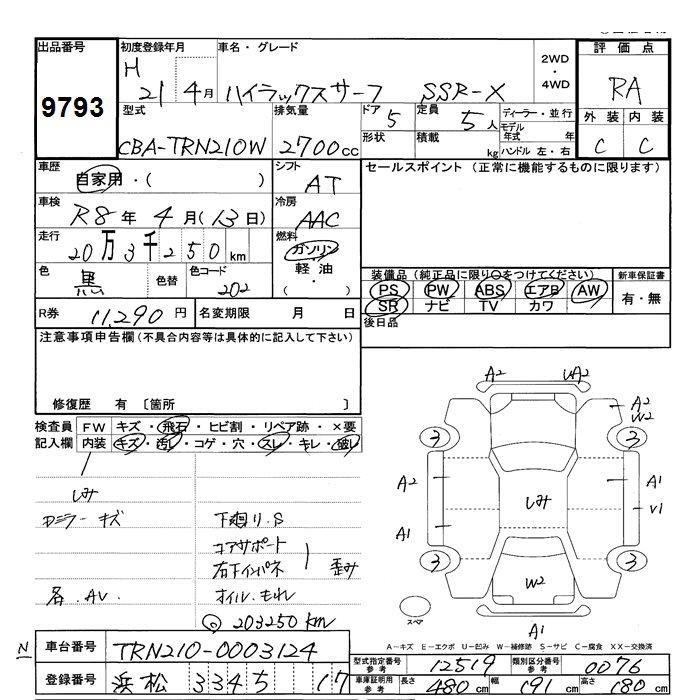 出品番号
9793
初度登録年月
H 21 4月
車名・グレード
ハイラックスサーフ SSR-X
2WD
・
4WD
評価点
RA
外装 内装
C C
型式
CBA-TRN210W
排気量
2700cc
ドア
5
形状
定員
5人
積載
kg
ディーラー・並行
モデル年式 年
ハンドル 左・右
車歴
自家用・( )
シフト
AT
セールスポイント (正常に機能するものに限ります)
車検
R8年 4月(13日)
冷房
AAC
走行
20万3千250km
燃料
ガソリン
軽油・
( )
色
黒
色替
色コード
202
装備品(純正品に限り○をつけてください)
PS PW ABS エアB AW
SR ナビ TV カワ
新車保証書
有・無
R券
11,290円
名変期限 月 日
後日品
注意事項申告欄(不具合内容等は具体的に記入して下さい)
修復歴 有 〔箇所 〕
検査員記入欄
FW キズ・飛石・ヒビ割・リペア跡・×要
内装 キズ・汚れ・コゲ・穴・スレ・キレ・破れ
シミ
ミラー キズ
下廻り.S
コアサポート
右下インパネ
歪み
各.AV.
オイルもれ
◎203250km
A2 UA2
A2
W2
3 3
A2 A1
シミ
V1
A1
3 3
W2
スペア
A1
A-キズ E-エクボ U-凹み W-補修跡 S-サビ C-腐食 XX-交換済
N
車台番号
TRN210-0003124
登録番号
浜松 334 5 17
型式指定番号参考
12519
類別区分番号参考
0076
車庫証明用参考
長さ 480cm 幅 191cm 高さ 180cm